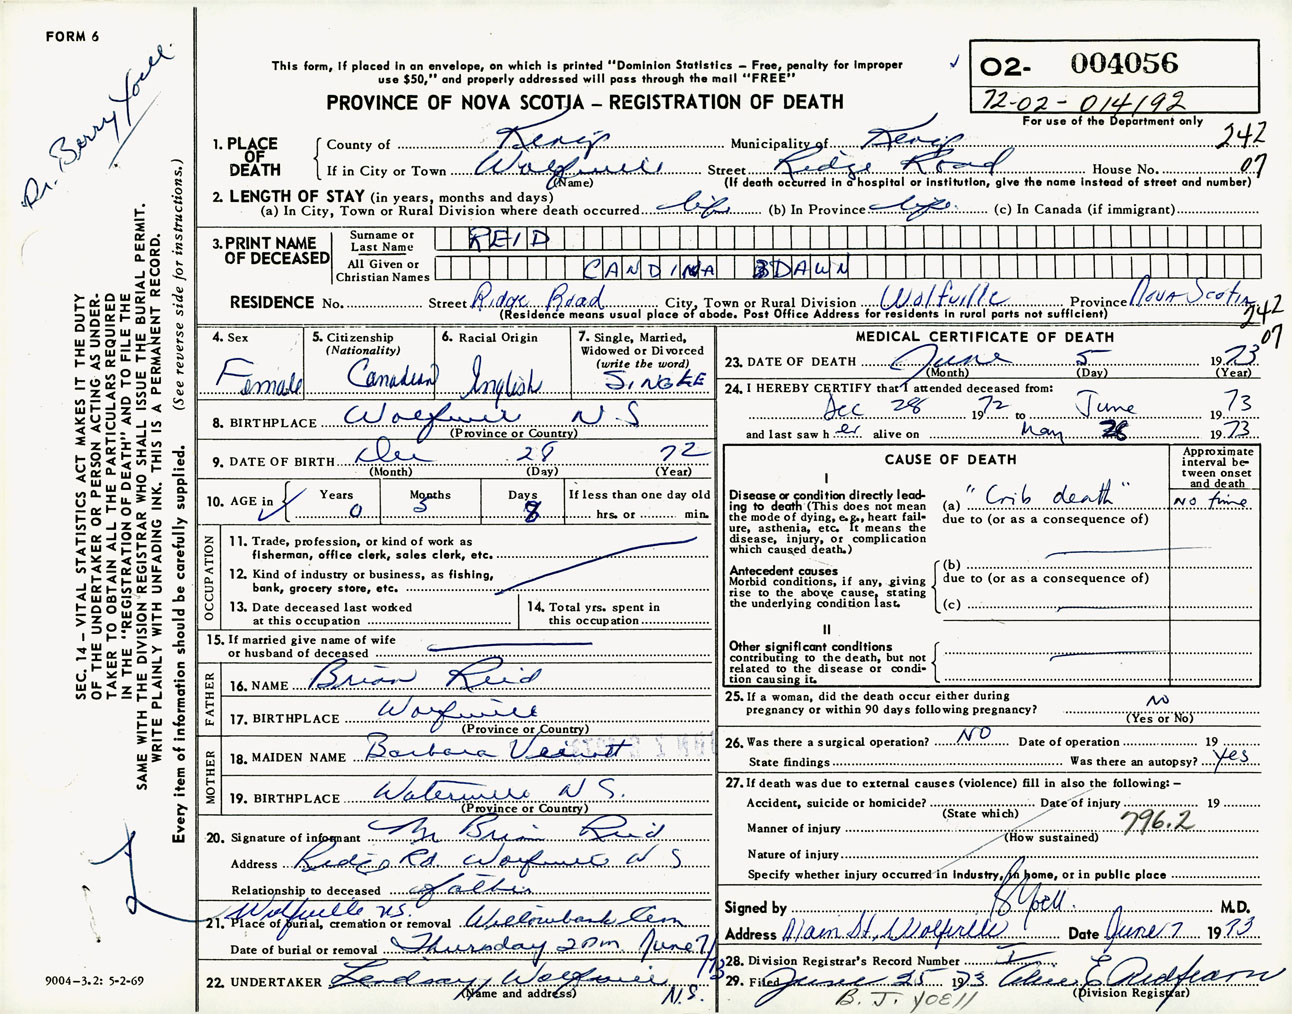 FORM 6
Dr. Berry Yoell.
SEC. 14 – VITAL STATISTICS ACT MAKES IT THE DUTY
OF THE UNDERTAKER OR PERSON ACTING AS UNDER-
TAKER TO OBTAIN ALL THE PARTICULARS REQUIRED
IN THE "REGISTRATION OF DEATH" AND TO FILE THE
SAME WITH THE DIVISION REGISTRAR WHO SHALL ISSUE THE BURIAL PERMIT.
WRITE PLAINLY WITH UNFADING INK. THIS IS A PERMANENT RECORD.
Every item of information should be carefully supplied. (See reverse side for instructions.)
9004-3.2: 5-2-69
This form, if placed in an envelope, on which is printed "Dominion Statistics – Free, penalty for improper
use $50," and properly addressed will pass through the mail "FREE"
PROVINCE OF NOVA SCOTIA – REGISTRATION OF DEATH
02- 004056
72-02-014192
For use of the Department only
242
07
1. PLACE OF DEATH
County of Kings Municipality of Kings
If in City or Town Wolfville Street Ridge Road House No.
(Name) (If death occurred in a hospital or institution, give the name instead of street and number)
2. LENGTH OF STAY (in years, months and days)
(a) In City, Town or Rural Division where death occurred life (b) In Province life. (c) In Canada (if immigrant)
3. PRINT NAME OF DECEASED
Surname or Last Name REID
All Given or Christian Names CANDINA DAWN
RESIDENCE No. Street Ridge Road City, Town or Rural Division Wolfville Province Nova Scotia
(Residence means usual place of abode. Post Office Address for residents in rural parts not sufficient)
242
07
4. Sex Female
5. Citizenship (Nationality) Canadian
6. Racial Origin English
7. Single, Married, Widowed or Divorced (write the word) SINGLE
8. BIRTHPLACE Wolfville N S
(Province or Country)
9. DATE OF BIRTH Dec 28 72
(Month) (Day) (Year)
10. AGE in Years 0 Months 5 Days 8 If less than one day old hrs. or min.
OCCUPATION
11. Trade, profession, or kind of work as
fisherman, office clerk, sales clerk, etc.
12. Kind of industry or business, as fishing,
bank, grocery store, etc.
13. Date deceased last worked
at this occupation
14. Total yrs. spent in
this occupation
15. If married give name of wife
or husband of deceased
FATHER
16. NAME Brian Reid
17. BIRTHPLACE Wolfville
(Province or Country)
MOTHER
18. MAIDEN NAME Barbara Veinott
19. BIRTHPLACE Waterville N S.
(Province or Country)
20. Signature of informant Mr Brian Reid
Address Ridge Rd Wolfville N S
Relationship to deceased father
Wolfville N.S.
21. Place of burial, cremation or removal Willowbank Cem
Date of burial or removal Thursday 2 pm June 7/73
22. UNDERTAKER Lindsay Wolfville N.S.
(Name and address)
MEDICAL CERTIFICATE OF DEATH
23. DATE OF DEATH June 5 1973
(Month) (Day) (Year)
24. I HEREBY CERTIFY that I attended deceased from:
Dec 28 1972 to June 1973
and last saw her alive on May 28 1973
CAUSE OF DEATH
Approximate interval between onset and death
I
Disease or condition directly lead-
ing to death (This does not mean
the mode of dying, e.g., heart fail-
ure, asthenia, etc. It means the
disease, injury, or complication
which caused death.)
(a) "Crib death" No time
due to (or as a consequence of)
Antecedent causes
Morbid conditions, if any, giving
rise to the above cause, stating
the underlying condition last.
(b)
due to (or as a consequence of)
(c)
II
Other significant conditions
contributing to the death, but not
related to the disease or condi-
tion causing it.
25. If a woman, did the death occur either during
pregnancy or within 90 days following pregnancy? No
(Yes or No)
26. Was there a surgical operation? NO Date of operation 19
State findings Was there an autopsy? Yes
27. If death was due to external causes (violence) fill in also the following: –
Accident, suicide or homicide? Date of injury 19
(State which)
Manner of injury 796.2
(How sustained)
Nature of injury
Specify whether injury occurred in industry, in home, or in public place
Signed by B Yoell. M.D.
Address Main St, Wolfville Date June 7 1973
28. Division Registrar's Record Number
29. Filed June 25 1973 E. Redfearn
(Division Registrar)
B. J. YOEll